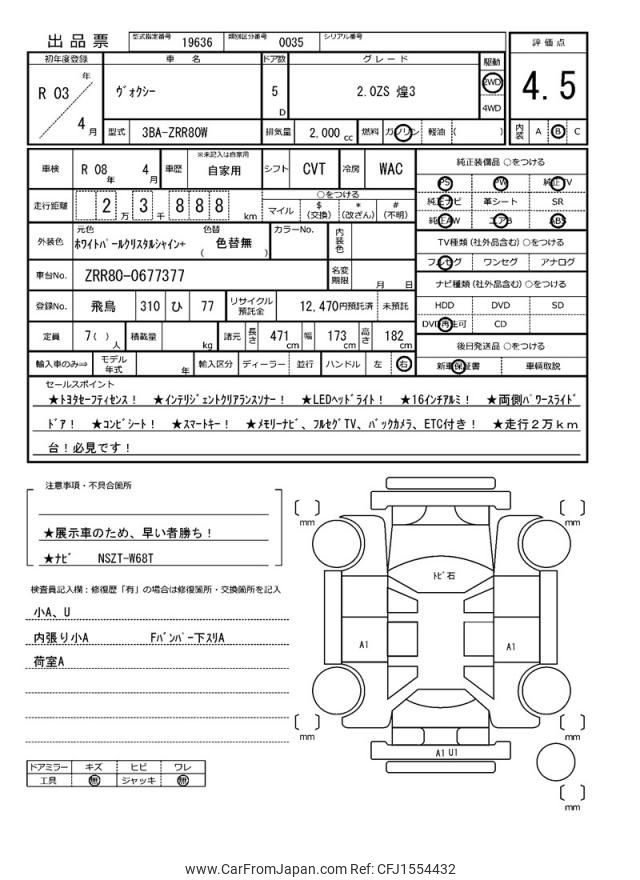 出品票 型式指定番号 19636 類別区分番号 0035 シリアル番号
評価点
4.5
内装 A B C
初年度登録 車名 ドア数 グレード 駆動
R 03 年 4 月 ヴォクシー 5 D 2.0ZS 煌3 2WD 4WD
型式 3BA-ZRR80W 排気量 2,000 cc 燃料 ガソリン 軽油 ( )
車検 R 08 年 4 月 車歴 ※未記入は自家用 自家用 シフト CVT 冷房 WAC
走行距離 2 万 3 千 8 8 8 km ○をつける マイル $ (交換) * (改ざん) # (不明)
外装色 元色 ホワイトパールクリスタルシャイン+ 色替 ( 色替無 ) カラーNo. 内装色
車台No. ZRR80-0677377 名変期限 月 日
登録No. 飛鳥 310 ひ 77 リサイクル預託金 12,470円預託済 未預託
定員 7( ) 人 積載量 kg 諸元 長さ 471 cm 幅 173 cm 高さ 182 cm
輸入車のみ⇒ モデル年式 年 輸入区分 ディーラー 並行 ハンドル 左 右
純正装備品 ○をつける
PS PW 純正TV
純正ナビ 革シート SR
純正AW エアB ABS
TV種類(社外品含む)○をつける
フルセグ ワンセグ アナログ
ナビ種類(社外品含む)○をつける
HDD DVD SD
DVD再生可 CD
後日発送品 ○をつける
新車保証書 車輌取説
セールスポイント
★トヨタセーフティセンス! ★インテリジェントクリアランスソナー! ★LEDヘッドライト! ★16インチアルミ! ★両側パワースライド
ドア! ★コンビシート! ★スマートキー! ★メモリーナビ、フルセグTV、バックカメラ、ETC付き! ★走行2万km
台!必見です!
注意事項・不具合箇所
★展示車のため、早い者勝ち!
★ナビ NSZT-W68T
検査員記入欄:修復歴「有」の場合は修復箇所・交換箇所を記入
小A、U
内張り小A Fバンパー下スリA
荷室A
ドアミラー キズ ヒビ ワレ
工具 無 ジャッキ 無
mm
mm
トビ石
A1
A1
mm
mm
A1 U1
mm
www.CarFromJapan.com Ref: CFJ1554432